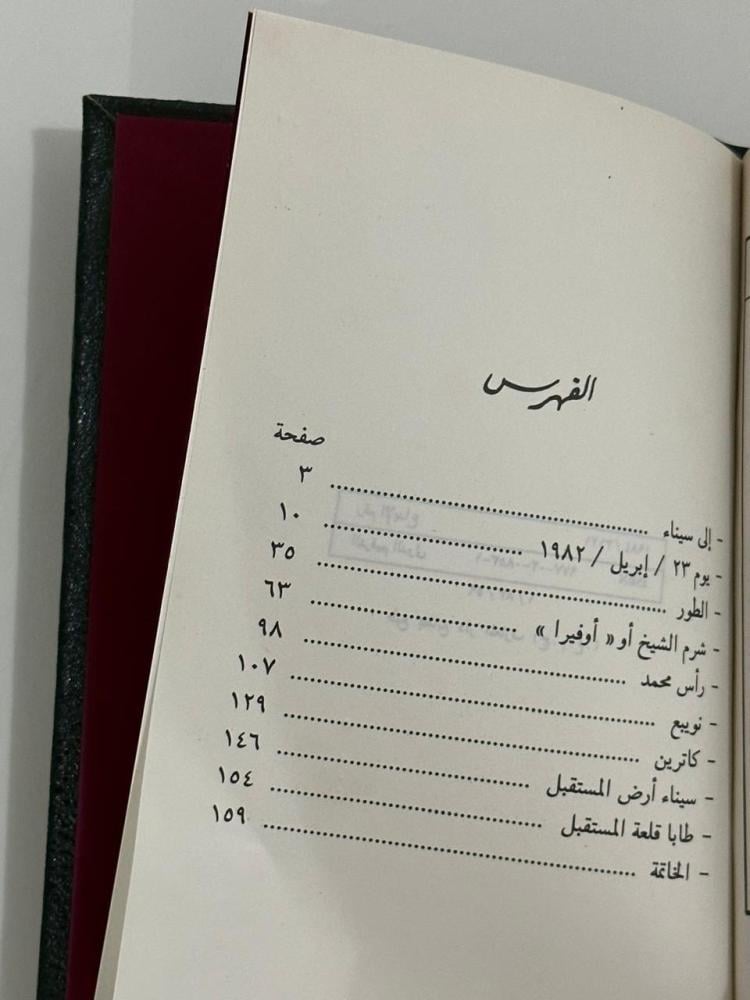 الفهرس
صفحة
- إلى سيناء ................................ ٣
- يوم ٢٣ / إبريل / ١٩٨٢ .................... ١٠
- الطور ................................ ٣٥
- شرم الشيخ أو « أوفيرا » .................... ٦٣
- رأس محمد ................................ ٩٨
- نويبع ................................ ١٠٧
- كاترين ................................ ١٢٩
- سيناء أرض المستقبل .................... ١٤٦
- طابا قلعة المستقبل .................... ١٥٤
- الخاتمة ................................ ١٥٩